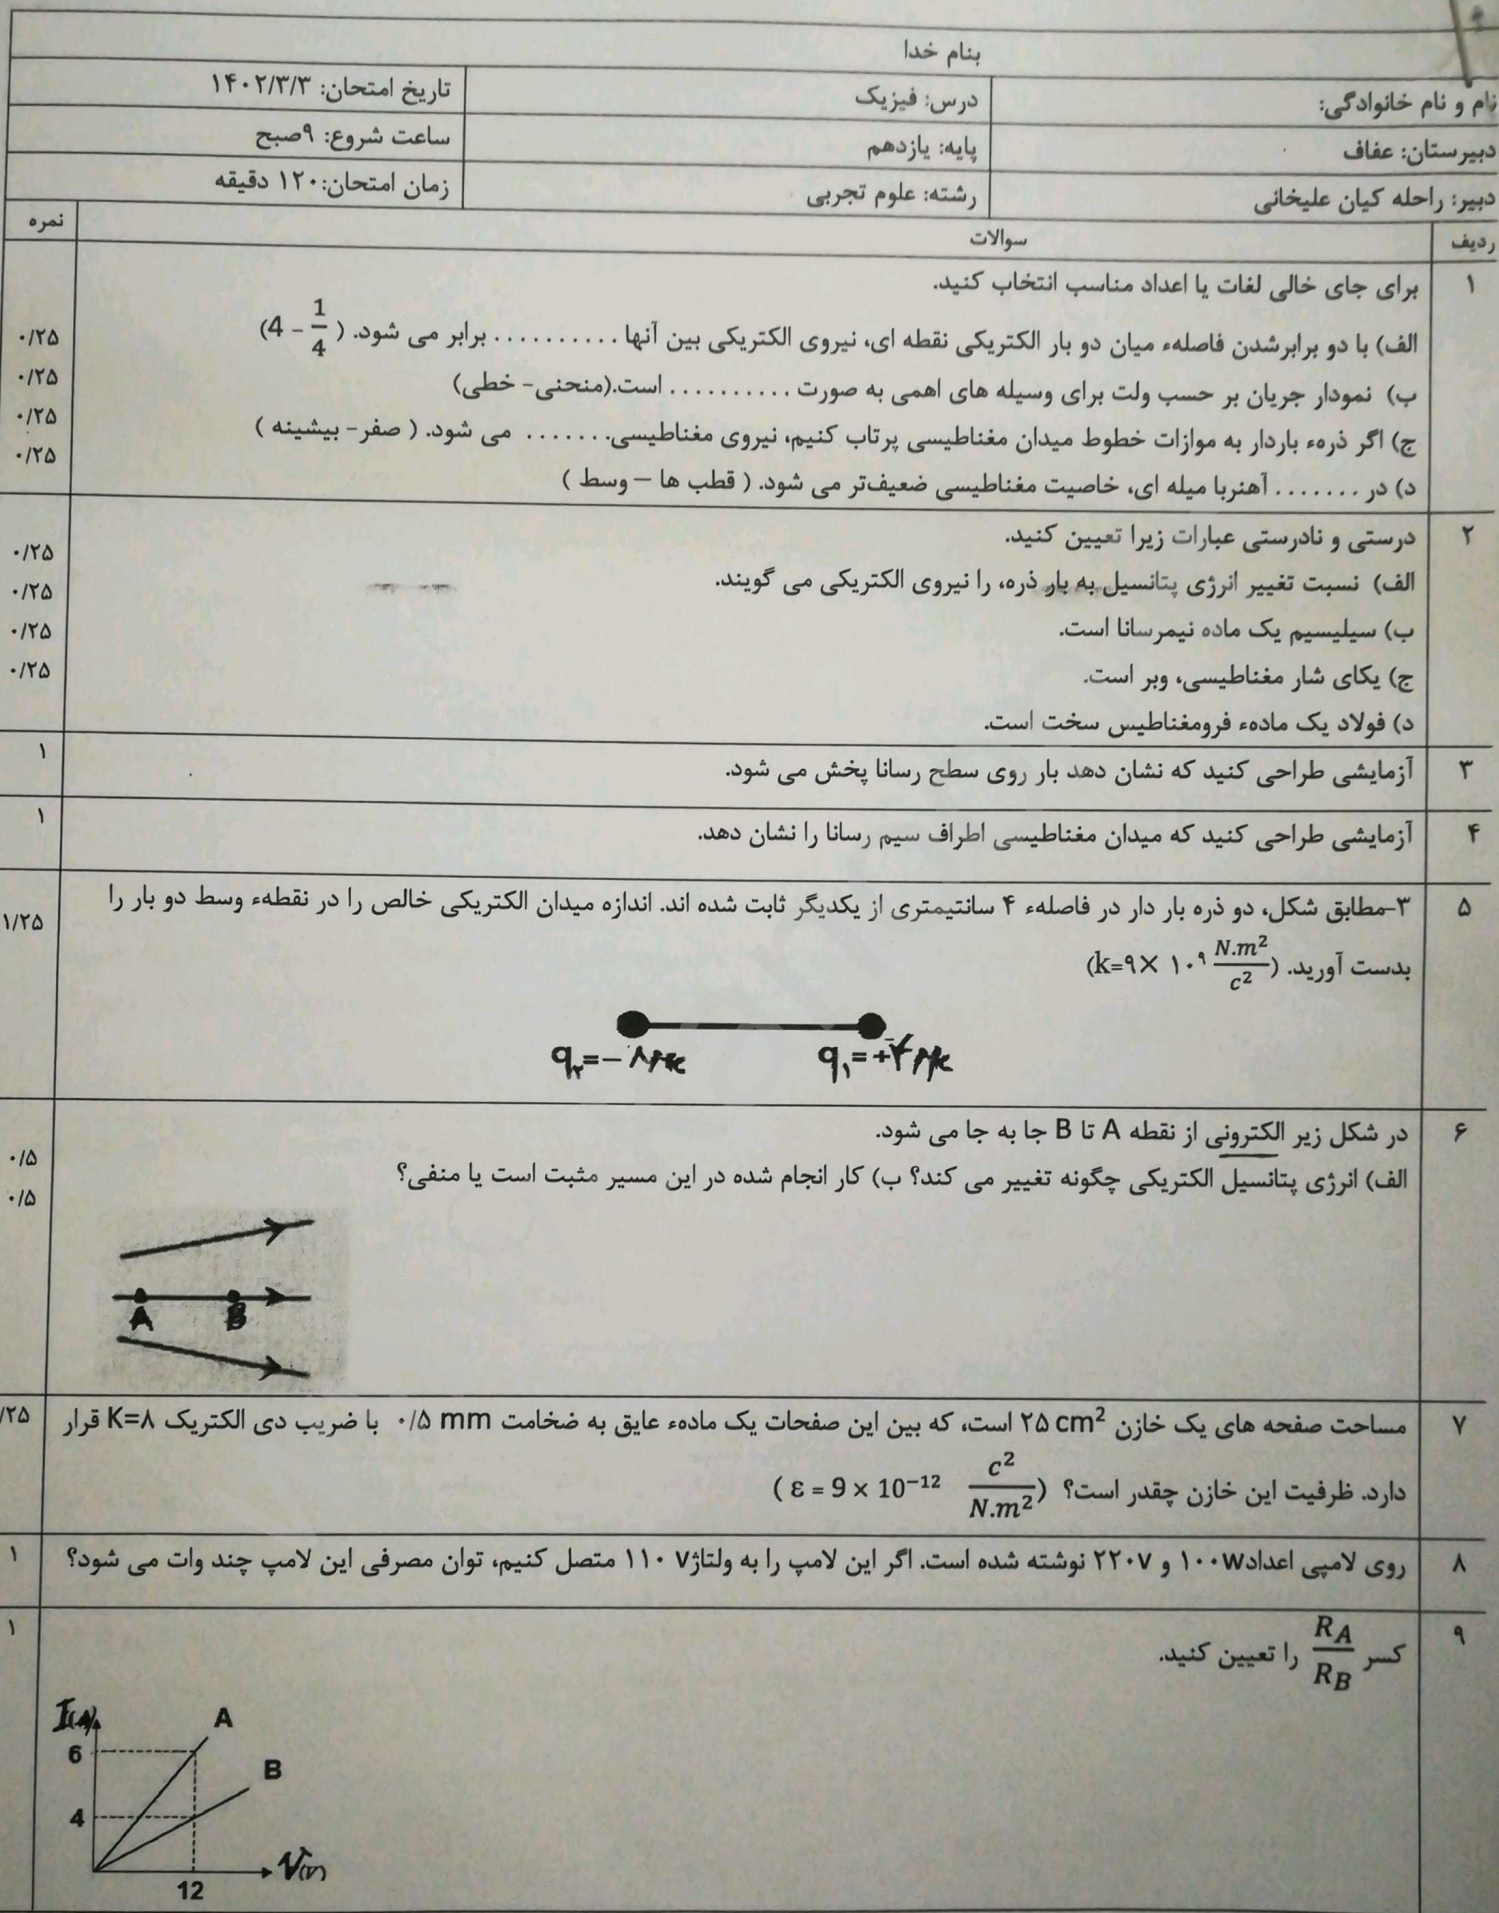 بنام خدا
نام و نام خانوادگی:
درس: فیزیک
تاریخ امتحان: ۱۴۰۲/۳/۳
دبیرستان: عفاف
پایه: یازدهم
ساعت شروع: ۹صبح
دبیر: راحله کیان علیخانی
رشته: علوم تجربی
زمان امتحان:۱۲۰ دقیقه
ردیف
سوالات
نمره
۱
برای جای خالی لغات یا اعداد مناسب انتخاب کنید.
الف) با دو برابرشدن فاصلهء میان دو بار الکتریکی نقطه ای، نیروی الکتریکی بین آنها .......... برابر می شود. ( 1/4 - 4) ۰/۲۵
ب) نمودار جریان بر حسب ولت برای وسیله های اهمی به صورت .......... است.(منحنی- خطی) ۰/۲۵
ج) اگر ذرهء باردار به موازات خطوط میدان مغناطیسی پرتاب کنیم، نیروی مغناطیسی....... می شود. ( صفر- بیشینه ) ۰/۲۵
د) در ....... آهنربا میله ای، خاصیت مغناطیسی ضعیف‌تر می شود. ( قطب ها – وسط ) ۰/۲۵
۲
درستی و نادرستی عبارات زیرا تعیین کنید.
الف) نسبت تغییر انرژی پتانسیل به بار ذره، را نیروی الکتریکی می گویند. ۰/۲۵
ب) سیلیسیم یک ماده نیمرسانا است. ۰/۲۵
ج) یکای شار مغناطیسی، وبر است. ۰/۲۵
د) فولاد یک مادهء فرومغناطیس سخت است. ۰/۲۵
۳
آزمایشی طراحی کنید که نشان دهد بار روی سطح رسانا پخش می شود. ۱
۴
آزمایشی طراحی کنید که میدان مغناطیسی اطراف سیم رسانا را نشان دهد. ۱
۵
۳-مطابق شکل، دو ذره بار دار در فاصلهء ۴ سانتیمتری از یکدیگر ثابت شده اند. اندازه میدان الکتریکی خالص را در نقطهء وسط دو بار را ۱/۲۵
بدست آورید. (k=۹× ۱۰^۹ N.m²/c²)
q₂=-۸μc q₁=+۴μc
۶
در شکل زیر الکترونی از نقطه A تا B جا به جا می شود.
الف) انرژی پتانسیل الکتریکی چگونه تغییر می کند؟ ب) کار انجام شده در این مسیر مثبت است یا منفی؟
۰/۵
۰/۵
A B
۷
مساحت صفحه های یک خازن ۲۵ cm² است، که بین این صفحات یک مادهء عایق به ضخامت ۰/۵ mm با ضریب دی الکتریک K=۸ قرار /۲۵
دارد. ظرفیت این خازن چقدر است؟ ( ε = 9 × 10⁻¹² c²/N.m²)
۸
روی لامپی اعداد۱۰۰W و ۲۲۰V نوشته شده است. اگر این لامپ را به ولتاژ۱۱۰ V متصل کنیم، توان مصرفی این لامپ چند وات می شود؟ ۱
۹
کسر R_A/R_B را تعیین کنید. ۱
I(A)
A
6
B
4
V(V)
12